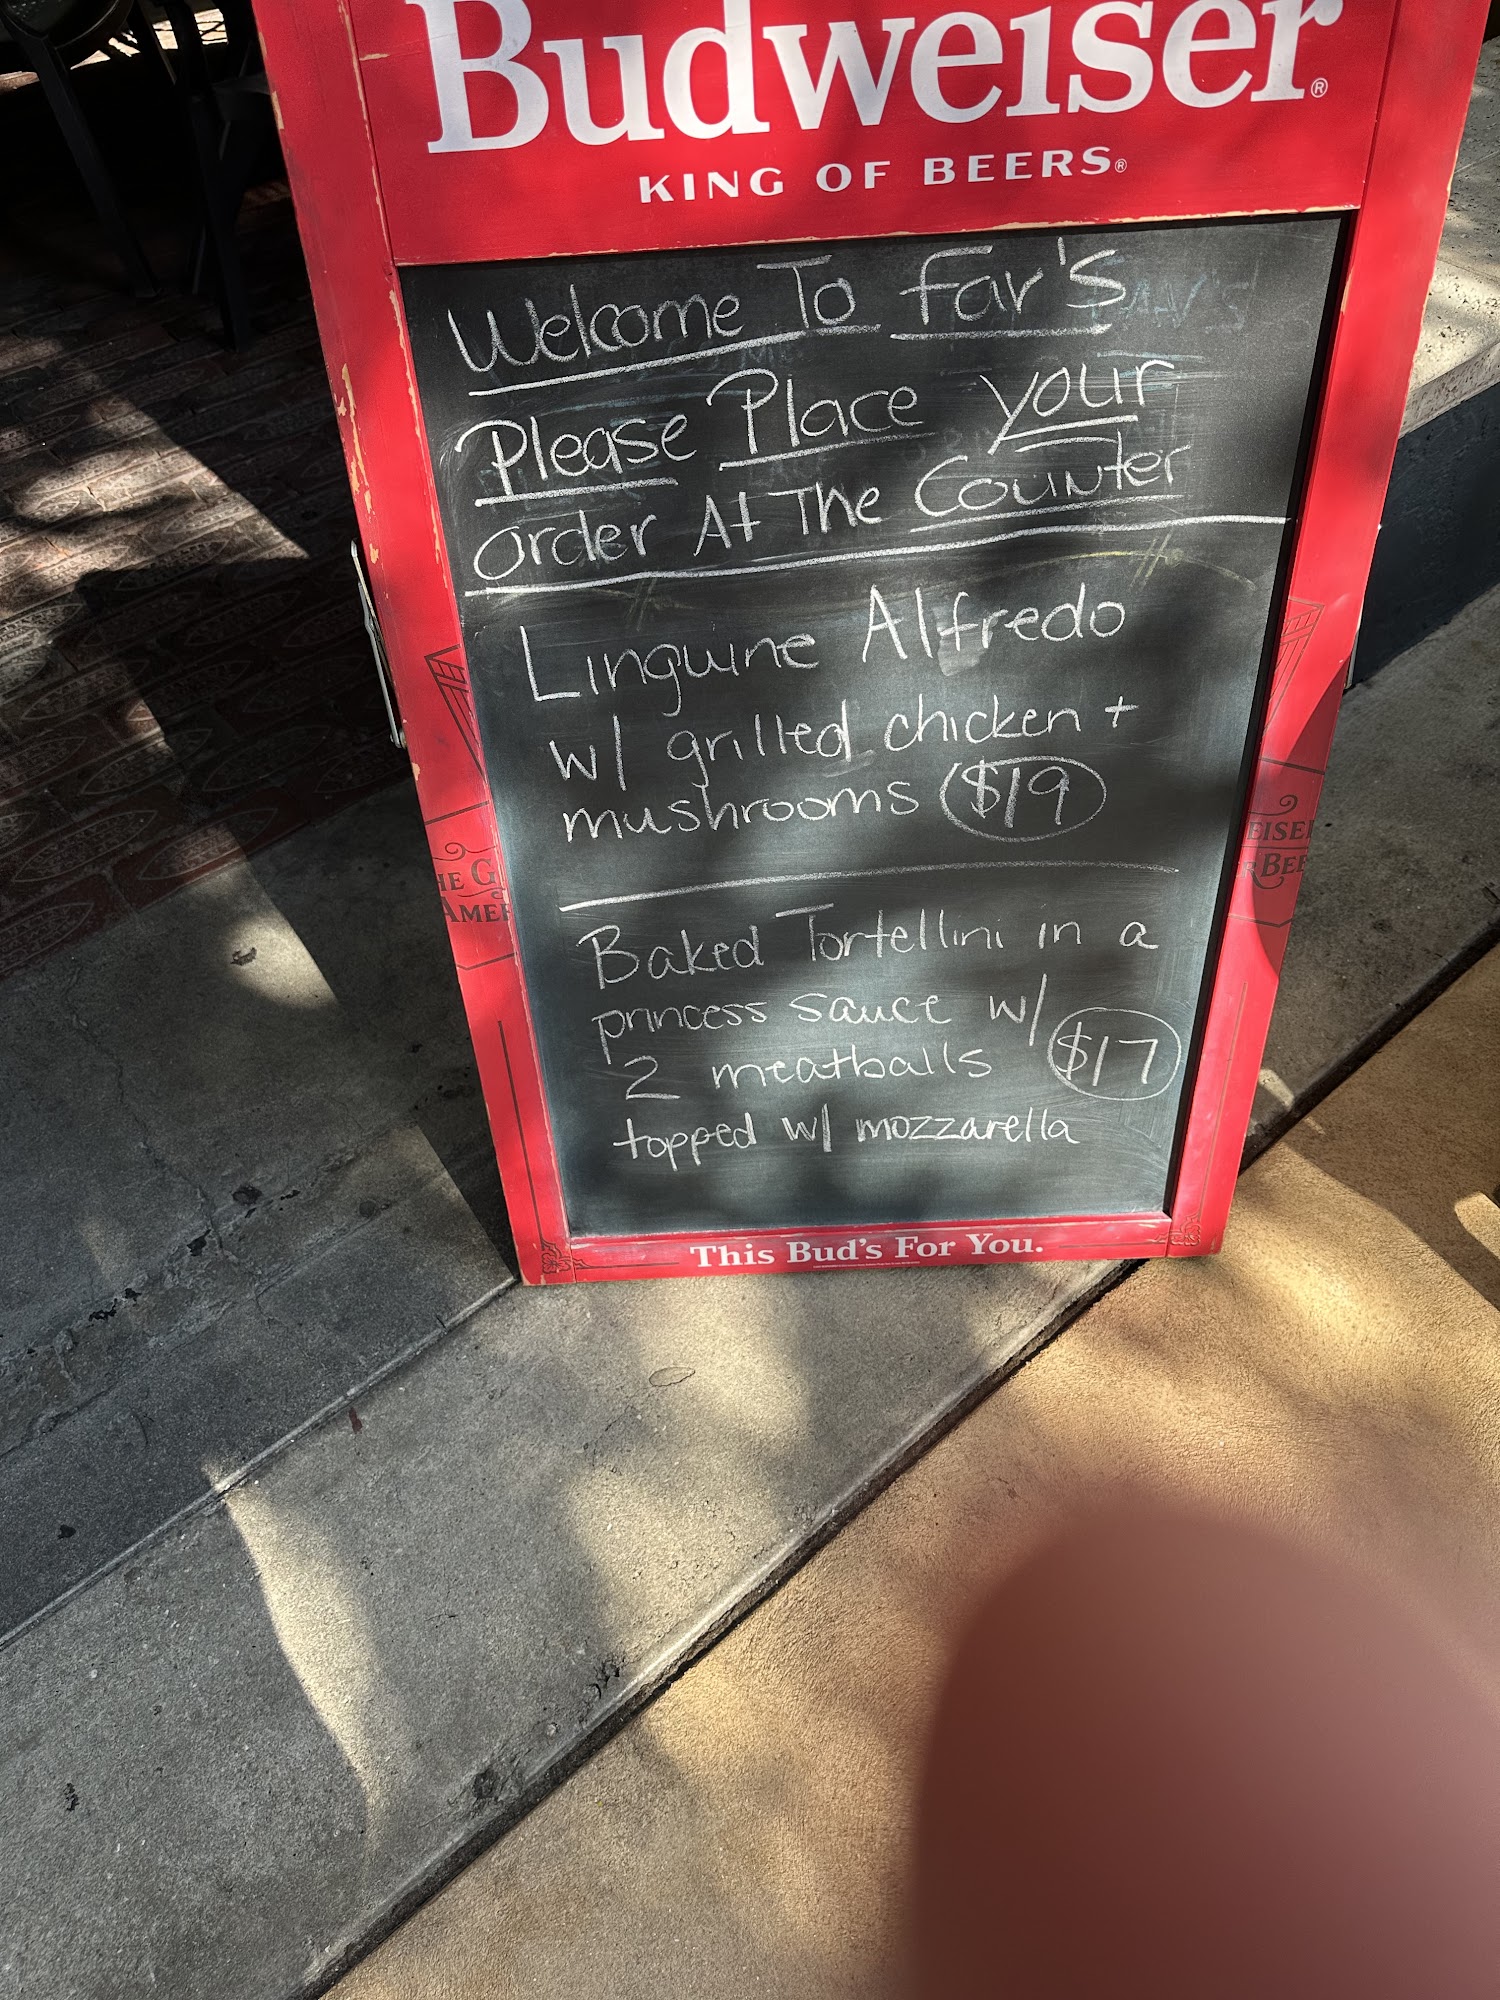 Budweiser®
KING OF BEERS®
Welcome To Far's
Please Place your
order At The Counter
Linguine Alfredo
w/ grilled chicken +
mushrooms $19
Baked Tortellini in a
princess sauce w/
2 meatballs $17
topped w/ mozzarella
HE G
AMER
EISER
R BEE
This Bud's For You.